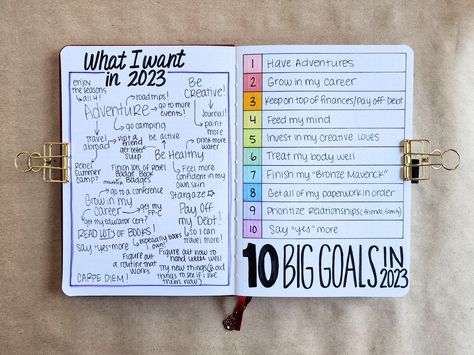 What I want
in 2023
enjoy
the seasons
all 4!
Be
Creative!
road trips!
go to more
events!
Journal!
paint
more
Adventure
go camping
travel
abroad
visit a
friend
be active
drink more
water
get better
sleep
Rebel
summer
camp?
Finish lots of Rebel
Badge Book
Badges
Be Healthy
Feel more
confident in
my own
skin
go to a conference
Stargaze
Grow in my
career
get my
get my educator cert?
Pay off
my Debt!
so I can
travel more!
READ LOTS of BOOKS!
especially books
I own!
SAY "yes" more
Figure out
a routine that
works
Figure out how to
hand letter well
Try new things (& old
things to see if I like
them now)
CARPE DIEM!
1 Have Adventures
2 Grow in my Career
3 Keep on top of finances/Pay off Debt
4 Feed my mind
5 Invest in my creative loves
6 Treat my body well
7 Finish my "Bronze Maverick"
8 Get all of my paperwork in order
9 Prioritize Relationships (friends, family)
10 Say "yes" more
10 BIG GOALS IN
2023